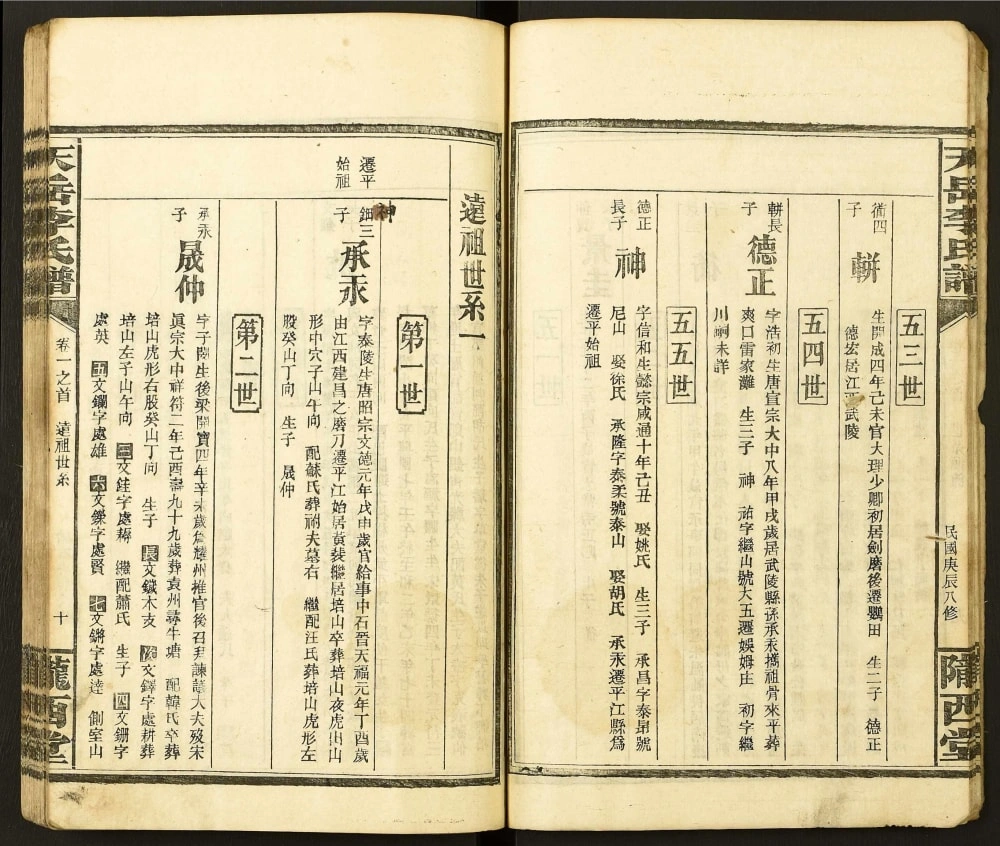 天岳李氏譜
民國庚辰八修
隴西堂
五三世
衜四
子
軿
生開成四年己未官大理少卿初居劍磨後遷鸚田　生二子　德正
德宏居江西武陵
五四世
軿長
子
德正
字浩初生唐宣宗大中八年甲戌歲居武陵縣孫承汞攜祖骨來平葬
爽口雷家灘　生三子　神　祐字繼山號大五遷娛姆庄　初字繼
川嗣未詳
五五世
德正
長子
神
字信和生懿宗咸通十年己丑　娶姚氏　生三子　承昌字泰昻號
尼山　娶徐氏　承隆字泰柔號泰山　娶胡氏　承汞遷平江縣爲
遷平始祖
遠祖世系一
第一世
遷平
始祖
神
鈿三
子
承汞
字泰陵生唐昭宗文德元年戊申歲官給事中石晉天福元年丁酉歲
由江西建昌之磨刀遷平江始居黃裝繼居培山卒葬培山夜虎出山
形中穴子山午向　配蘇氏葬祔夫墓右　繼配汪氏葬培山虎形左
股癸山丁向　生子　晟仲
第二世
承汞
子
晟仲
字子陞生後梁開寶四年辛未歲爲耀州推官後召尹諫議大夫歿宋
眞宗大中祥符二年己酉壽九十九歲葬袁州尋牛塘　配韓氏卒葬
培山虎形右股癸山丁向　生子　長文鐵木支　次文鐸字處耕葬
培山左子山午向　三文銈字處耨　繼配蕭氏　生子　四文鈿字
處英　五文鑭字處雄　六文鑠字處賢　七文鏘字處逵　側室山
天岳李氏譜
卷一之首　遠祖世系
十
隴西堂